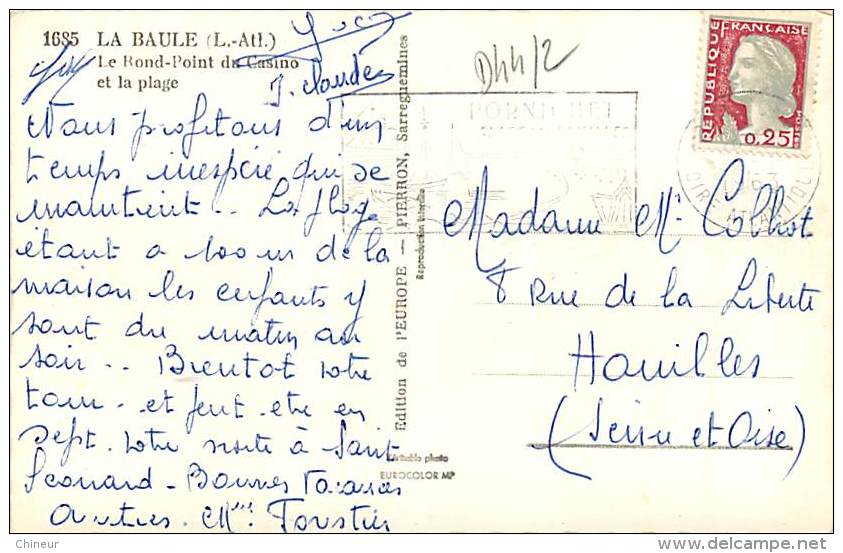 1685 LA BAULE (L.-Atl.)
Le Rond-Point du Casino
et la plage
J. Claude
D44/2
Nous profitons d'un
temps inespéré qui se
maintient.. La plage
étant a 100 m de la
maison les enfants y
sont du matin au
soir.. Bientôt votre
tour. et peut-etre en
Sept. votre visite à Saint
Leonard - Bonnes Vacances
à
tres. Mme
Edition de l'EUROPE — PIERRON, Sarreguemines
Reproduction interdite
Véritable photo
EUROCOLOR MP
PORNICHET
REPUBLIQUE FRANÇAISE
0,25
LOIRE ATLANTIQUE
Madame Me Colhot
8 Rue de la Liberte
Houilles
(Seine et Oise)
Chineur
delcampe.net